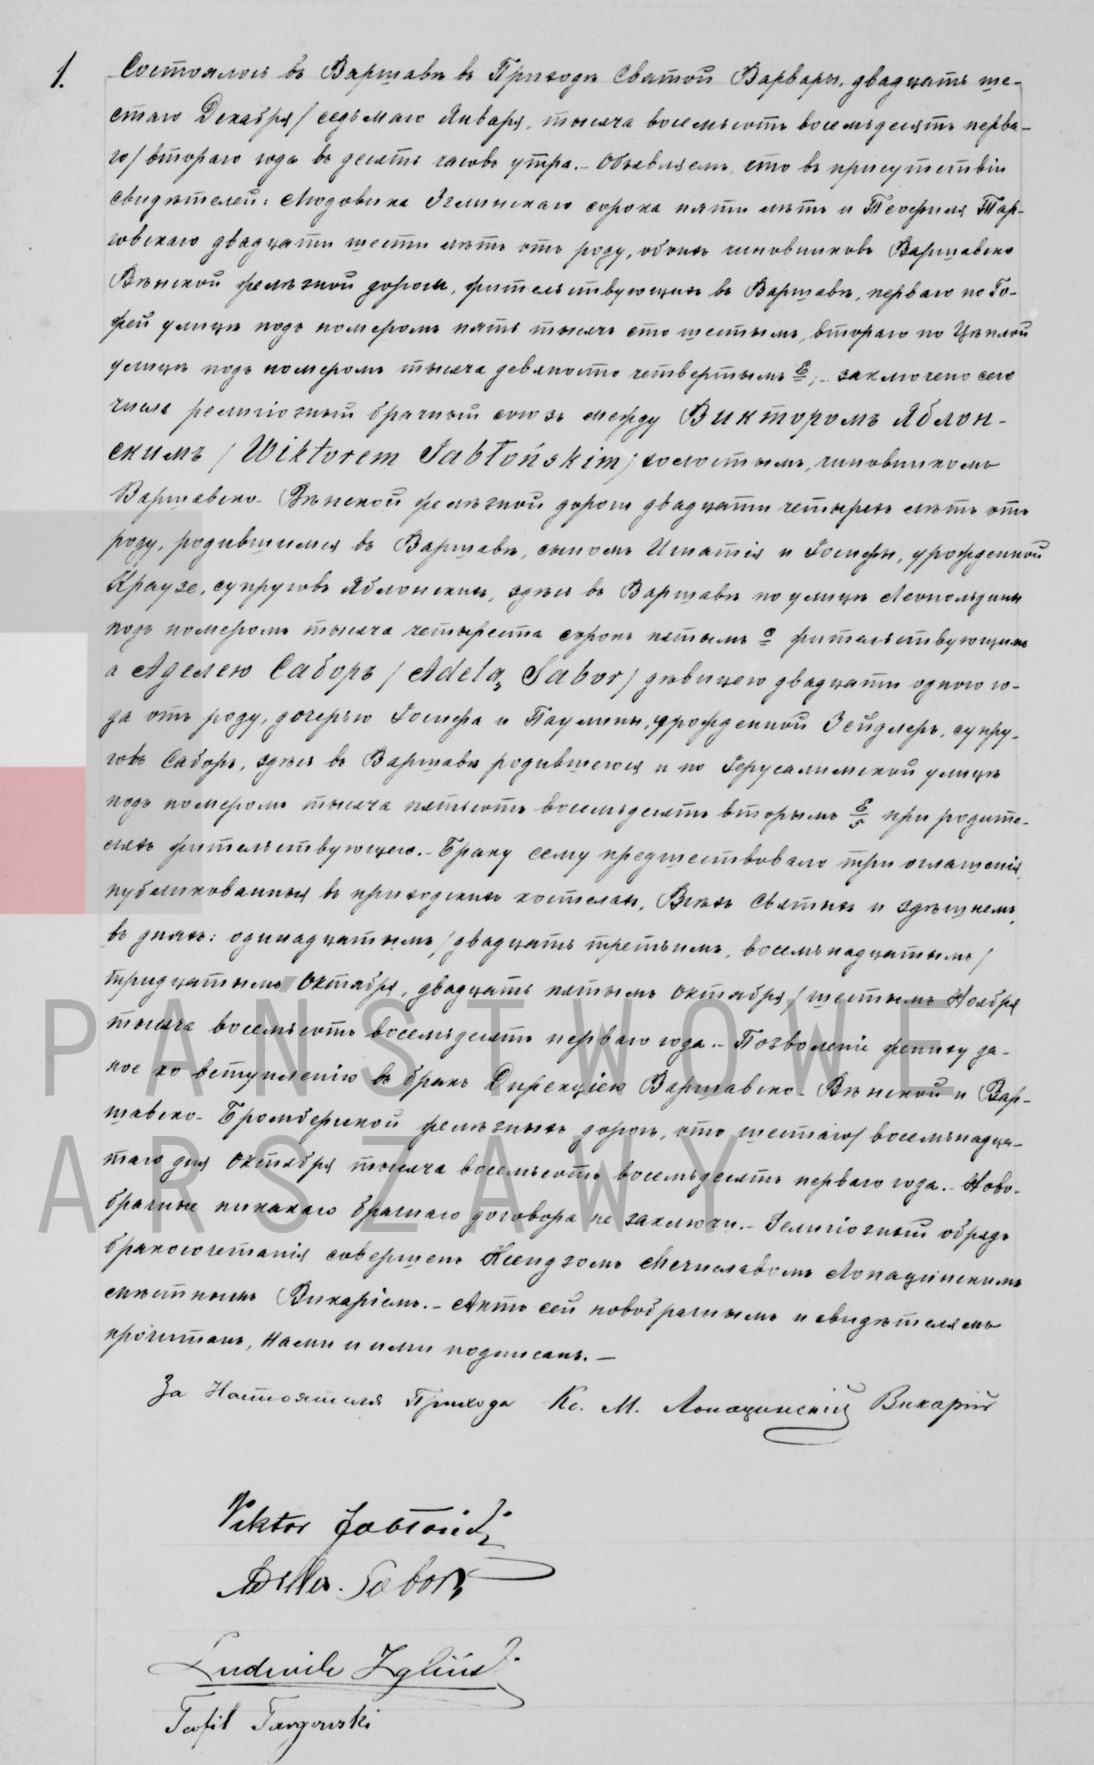 1. Состоялось въ Варшавѣ въ Приходѣ Святой Варвары, двадцать ше-
стаго Декабря / седьмаго Января, тысяча восемьсотъ восемьдесятъ перва-
го / втораго года въ десять часовъ утра. – Объявляемъ, что въ присутствіи
свидѣтелей: Людовика Зглинскаго сорока пяти лѣтъ и Теофиля Тар-
говскаго двадцати шести лѣтъ отъ роду, обоихъ чиновниковъ Варшавско
Вѣнской желѣзной дороги, жительствующихъ въ Варшавѣ, перваго по Го-
жей улицѣ подъ номеромъ пять тысячъ сто шестымъ, втораго по Цѣплой
улицѣ подъ номеромъ тысяча девяносто четвертымъ E; – заключено сего
числа религіозный брачный союзъ между Викторомъ Яблон-
скимъ / Wiktorem Jabłońskim / холостымъ, чиновникомъ
Варшавско-Вѣнской желѣзной дороги двадцати четырехъ лѣтъ отъ
роду, родившимся въ Варшавѣ, сыномъ Игнатія и Іосифы, урожденной
Краузе, супруговъ Яблонскихъ, здѣсь въ Варшавѣ по улицѣ Леопольдины
подъ номеромъ тысяча четыреста сорокъ пятымъ жительствующимъ
а Аделею Саборъ / Adelą Sabor / дѣвицею двадцати одного го-
да отъ роду, дочерью Іосифа и Паулины, урожденной Зейдлеръ, супру-
говъ Саборъ, здѣсь въ Варшавѣ родившеюся и по Іерусалимской улицѣ
подъ номеромъ тысяча пятьсотъ восемьдесятъ вторымъ при родите-
ляхъ жительствующею. – Браку сему предшествовало три оглашенія,
публикованныя въ приходскихъ костелахъ, Всѣхъ Святыхъ и здѣшнемъ,
въ дняхъ: одинадцатымъ / двадцать третьимъ, восемьнадцатымъ /
тридцатымъ Октября, двадцать пятымъ Октября / шестымъ Ноября
тысяча восемьсотъ восемьдесятъ перваго года. – Позволеніе жениху да-
ное ко вступленію въ бракъ Дирекціею Варшавско-Вѣнской и Вар-
шавско-Бромбергской желѣзныхъ дорогъ, отъ шестаго / восемьнадца-
таго дня Октября тысяча восемьсотъ восемьдесятъ перваго года. – Ново-
брачные никакаго брачнаго договора не заключи. – Религіозный обрядъ
бракосочетанія совершенъ Ксендзомъ Мечиславомъ Лопацинскимъ
мѣстнымъ Викаріемъ. – Актъ сей новобрачнымъ и свидѣтелямъ
прочитанъ, Нами и ими подписанъ. –
За Настоятеля Прихода Кс. М. Лопацинскій Викарій
Wiktor Jabłoński
Adela Sabor
Ludwik Zgliński
Teofil Targowski
PAŃSTWOWE
ARSZAWY